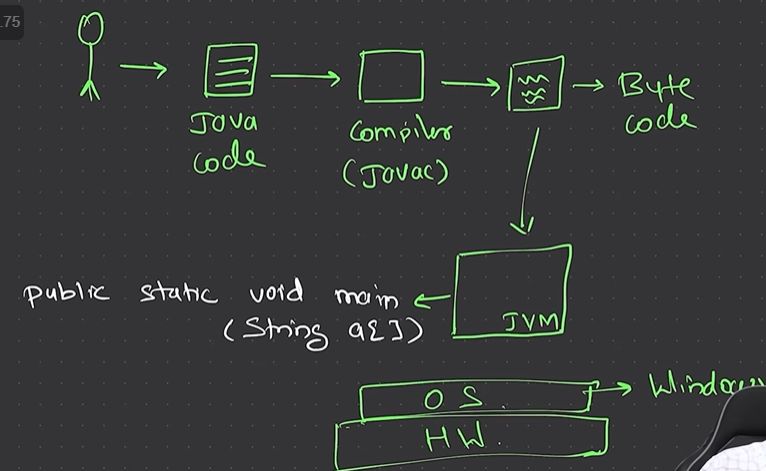 .75
Java
code
Compiler
(Javac)
Byte
code
public static void main
(String a[])
JVM
OS.
HW.
Windows